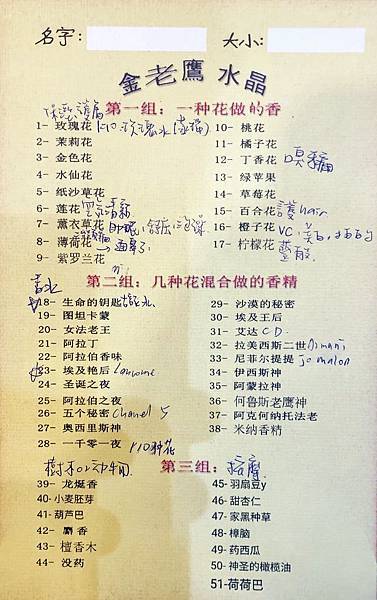 名字：
大小：
金老鷹 水晶
第一组：一种花做的香
1- 玫瑰花
2- 茉莉花
3- 金色花
4- 水仙花
5- 纸沙草花
6- 莲花
7- 薰衣草花 助眠
8- 薄荷花
9- 紫罗兰花
10- 桃花
11- 橘子花
12- 丁香花
13- 绿苹果
14- 草莓花
15- 百合花 護hair
16- 橙子花 VC
17- 柠檬花
第二组：几种花混合做的香精
香水
18- 生命的钥匙
19- 图坦卡蒙
20- 女法老王
21- 阿拉丁
22- 阿拉伯香味
23- 埃及艳后 Lancome
24- 圣诞之夜
25- 阿拉伯之夜
26- 五个秘密 Chanel 5
27- 奥西里斯神
28- 一千零一夜
29- 沙漠的秘密
30- 埃及王后
31- 艾达 C.D.
32- 拉美西斯二世 Armani
33- 尼菲尔提提 Jo malon
34- 伊西斯神
35- 阿蒙拉神
36- 何鲁斯老鹰神
37- 阿克何纳托法老
38- 米纳香精
樹和动物
第三组： 按摩
39- 龙涎香
40- 小麦胚芽
41- 葫芦巴
42- 麝香
43- 檀香木
44- 没药
45- 羽扇豆y
46- 甜杏仁
47- 家黑种草
48- 樟脑
49- 药西瓜
50- 神圣的橄榄油
51- 荷荷巴